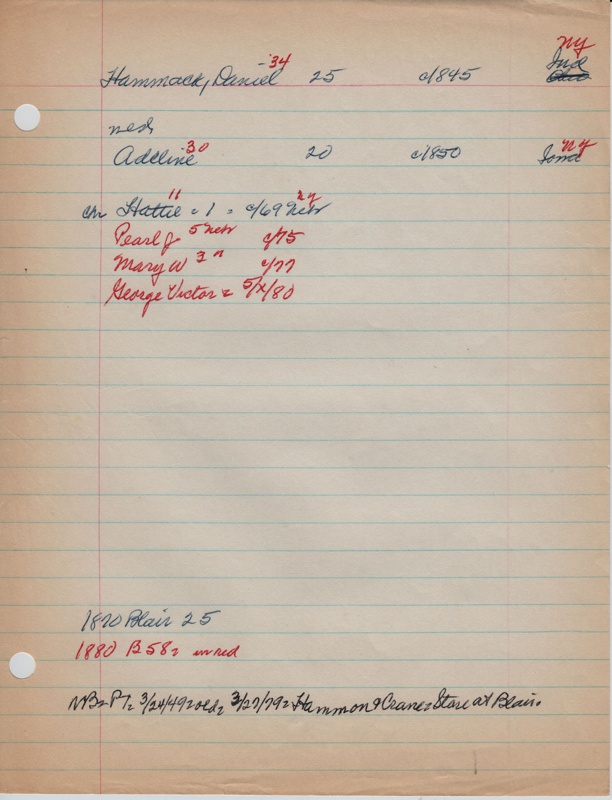 NY
'34 Ind
Hammack, Daniel 25 c/1845 Ohio
med,
Adeline '30 20 c/1850 Iowa NY
11 NY
ch Hattie = 1 = c/69 Nebr
Pearl J 5 Nebr c/75
Mary W 3 " c/77
George Victor = 5/X/80
1870 Blair 25
1880 B 58 = in red
NB = PT = 3/24/49 = old = 3/27/79 = Hammon & Crane = Store at Blair.